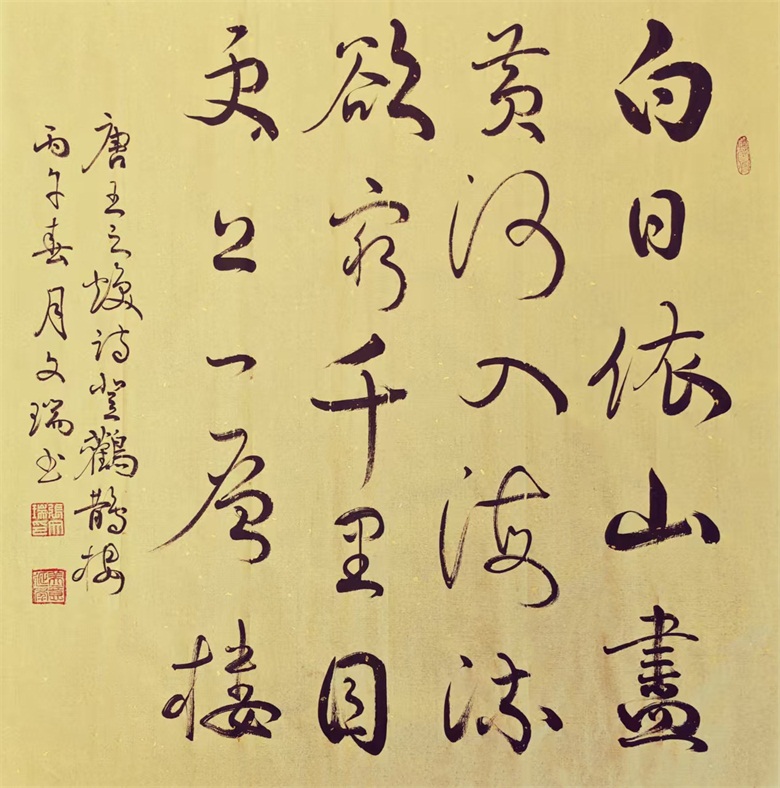 白日依山盡
黄河入海流
欲窮千里目
更上一層楼
唐王之煥诗登鸛鹊楼
丙午春月文瑞书